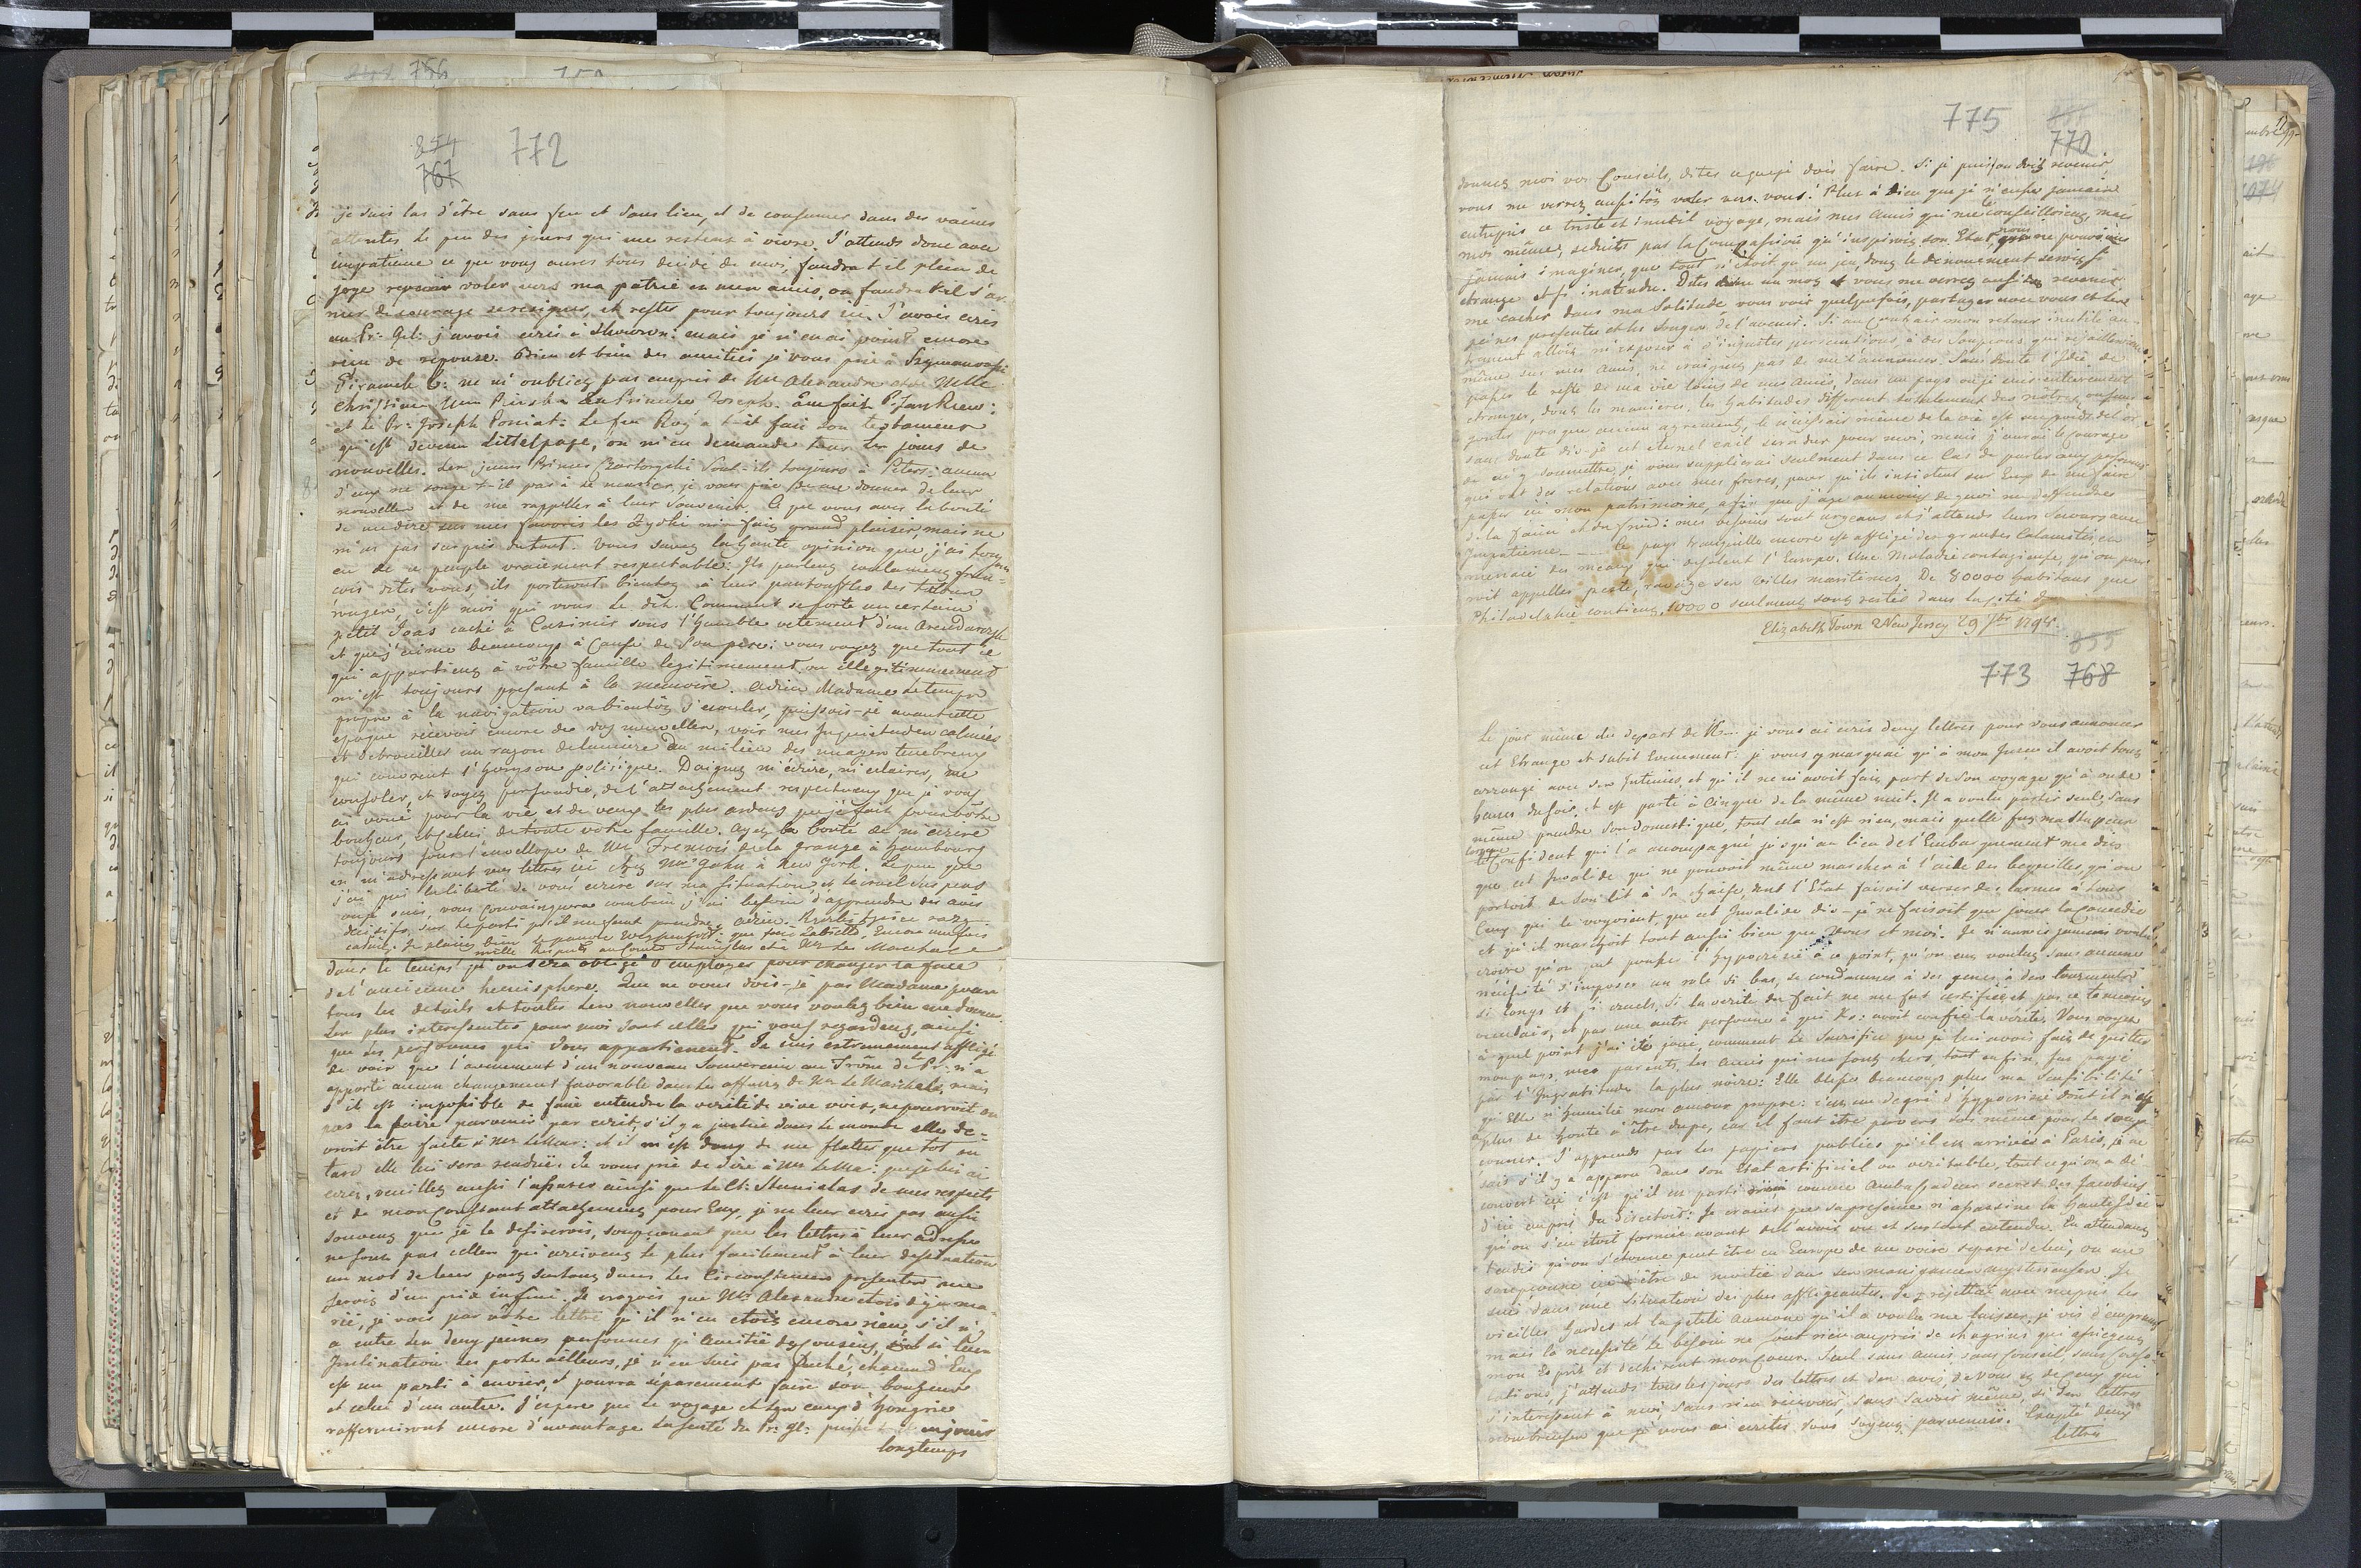 854 772
767
je suis las d'être sans feu et sans lieu, et de consumer dans des vaines
attentes le peu des jours qui me restent à vivre. J'attends donc avec
impatience ce que vous aures tous decidé de moi, faudra t il plein de
joye voler vers ma patrie en mes amis, ou faudra t-il s'ar-
mer de courage se resigner, et rester pour toujours ici. J'avois ecris
au Pr: Gl: j'avois ecris à mais je n'en ai point encore
rien de reponse. Bien et bien des amities je vous prie à
ne m'oubliez pas aupres de Mr Alexandre et de Melle
Christine Mme la Princesse Joseph.
et le Pr: Joseph Poniat: Le feu Roy a t-il fait son testament
qu'est devenu Littelpage, on m'en demande tous les jours de
nouvelles. Les jeunes Princes Czartoryski sont-ils toujours à Peters: aucun
d'eux ne songe t-il pas à se marier, je vous prie de me donner de leur
nouvelles et de me rappeller à leur souvenir. Ce que vous aves la bonté
de me dire sur mes favoris les Zydki m'a fais grand plaisir, mais ne
m'as pas surpris du tout. Vous savez la haute opinion que j'ai toujours
eu de ce peuple vraiement respectable. Ils parlent couramment fran-
cois dites vous, ils porteront bientôt à leur pantouffles des talons
rouges, c'est moi qui vous le dit. Comment se porte un certain
petit Joas caché à Casimir sous l'humble vetement d'un Arendarczyk
et que j'aime beaucoup à cause de son pere: vous voyez que tout ce
qui appartient à vôtre famille legitimement ou illegitimement
m'est toujours present à la memoire. Adieu Madame le temps
propre à la navigation va bientôt s'ecouler, puissais-je avant cette
epoque recevoir encore de vos nouvelles, voir mes Inquietudes calmées
et debrouiller un rayon de lumiere du milieu des nuages tenebreux
qui couvrent l'horyson politique. Daignez m'écrire, m'eclairer, me
consoler, et soyez persuadée, de l'attachement respectueux que je vous
ai voué pour la vie, et de voeux les plus ardens que je fais pour vôtre
bonheur, et celui de toute votre famille. Ayez la bonté de m'ecrire
toujours sous l'envellope de Mr François de la Grange à Hambourg
en m'adressant mes lettres ici chez Mrs Gahn à New York. Le peu que
j'ai pris la liberté de vous ecrire sur ma situation, et le cruel suspens
ou je suis, vous convainquera combien j'ai besoin d'apprendre des avis
decisifs, sur le parti qu'il me faut prendre. Adieu.
mille respects au Comte Stanislas et à Mr Le Marechal
dans le temps qu'on sera obligé d'employer pour changer la face
de l'ancienne hemisphere. Que ne vous dois-je pas Madame pour
tous les details et toutes les nouvelles que vous voulez bien me donner.
Les plus interessantes pour moi sont celles qui vous regardent, ainsi
que les personnes qui vous appartienent. Je suis extremement affligé
de voir que l'avenement d'un nouveau Souverain au Trône de Pr: n'a
apporté aucun changement favorable dans les affaires de Mr le Marechal, mais
s'il est impossible de faire entendre la verité de vive voix, ne pourroit on
pas la faire parvenir par ecrit, s'il y a justice dans le monde elle de-
vroit être faite à Mr le Mar: et il m'est doux de me flatter que tot ou
tard elle lui sera rendue. Je vous prie de dire à Mr le Mar: que je lui ai
ecris, veuillez aussi l'assurer ainsi que le Ct: Stanislas de mes respects
et de mon constant attachement pour Eux, je ne leur ecris pas aussi
souvent que je le desirerois, soupçonant que les lettres à leur adresse
ne sont pas celles qui arrivent le plus facilement à leur destination
un mot de leur part surtout dans les circonstances presentes me
seroit d'un prix infini. Je croyois que Mr Alexandre etois deja ma-
rié, je vois par vôtre lettre qu'il n'en etoit encore rien, s'il n'y
a entre les deux jeunes personnes qu'amitié de cousins, si leur
Inclination les porte ailleurs, je n'en suis pas faché, chacun d'Eux
est un parti à envier, et pourra separement faire son bonheur
et celui d'un autre. J'espere que le voyage et les eaux d'Hongrie
raffermiront encore d'avantage la santé du Pr: Gl: en jouir
longtemps
775
770
donnez moi vos Conseils, dites ce que je dois faire. Si je puis ou dois revenir
vous me verrez aussitôt voler vers vous! Plut à Dieu que je n'eusse jamais
entrepris ce triste et inutil voyage, mais mes Amis qui me le conseilloient, mais
moi même, seduits par la Compassion qu'inspiroit son Etat, nous ne pouvions
jamais imaginer, que tout n'étoit qu'un jeu, dont le denouement seroit si
etrange et si inatendu. Dites un mot et vous me verrez aussitôt revenir
me cacher dans ma solitude, vous voir quelquefois, partager avec vous et les
peines presentes et les songes de l'avenir. Si au contraire mon retour inutile au-
trement alloit m'exposer à d'injustes persecutions, à des soupçons qui rejailliroient
même sur mes amis, ne craignez pas de me l'annoncer. Sans doute l'Idée de
passer le reste de ma vie loins de mes Amis, dans un pays où je suis entierement
etranger, dont les manieres, les habitudes different totalement des nôtres, ou on ne
goute presque aucun agrement, le necessaire même de la vie est au poids de l'or,
sans doute dis-je cet eternel exil sera dur pour moi, mais j'aurai le courage
de m'y soumettre, je vous supplierai seulment dans ce cas de parler aux personnes
qui ont des relations avec mes freres, pour qu'ils insistent sur Eux de me faire
passer ici mon patrimoine, afin que j'aye au moins de quoi me deffendre
de la faim et du froid: mes besoins sont urgeans et j'attends leurs secours avec
Impatience. — le pays tranquille encore est affligé des grandes Calamités, et
menacé des meaux qui desolent l'Europe. Une Maladie contagieuse, qu'on pour-
roit appeller peste, ravage ses villes maritimes. De 80000 habitans que
Philadelphie contient, 10000 seulment sont restés dans la cité
Elizabeth Town New Jersey 29 7br 1798.
855
773 768
Le jour même du depart de K— je vous ai ecris deux lettres pour vous annoncer
cet Etrange et subit Evenement. je vous y marquai qu'à mon Insçu il avoit tout
arrangé avec ses Intimes, et qu'il ne m'avoit fait part de son voyage qu'à onze
heures du soir, et est parti à cinque de la même nuit. Il a voulu partir seul, sans
même prendre son domestique, tout cela n'est rien, mais quelle fut ma stupeur
lorsque le Confident qui l'a acompagné jusqu'au lieu de l'Embarquement me dis
que cet Invalide qui ne pouvoit même marcher à l'aide des bequilles, qu'on
portoit de son lit à sa chaise, dont l'Etat faisoit verser des larmes à tous
Ceux qui le voyoient, que cet Invalide dis-je ne faisoit que jouer la Comedie
et qu'il marchoit tout aussi bien que vous et moi. Je n'aurois jamais voulu
croire qu'on put pousser l'hypocrisie à ce point, qu'on eut voulut sans aucune
necessité s'imposer un role si bas, se condamner à des genes, à des tourments
si longs et si cruels, si la verité du fait ne me fut certifiée et par ce temoin
oculair, et par une autre personne à qui Ko: avoit confié la verité. Vous voyez
à quel point j'ai été joué, comment le Sacrifice que je lui avois fait de quitter
mon pays, mes parents, les amis qui me sont chers, tout enfin, fut payé
par l'Ingratitude la plus noire: Elle blesse beaucoup plus ma sensibilité
qu'Elle n'humilie mon amour propre: c'est un degré d'hypocrisie dont il n'est
plus de honte à être dupe, car il faut être pervers soi même, pour le soup-
conner. J'apprends par les papiers publics qu'il est arrivée à Paris, je ne
sais s'il y a apparu dans son Etat artificiel ou veritable, tout ce qu'on a dé-
couvert ici c'est qu'il est parti comme Ambassadeur secret des Jacobins
d'ici aupres du Directoire: Je crains que sa presence n'afaisse la haute Idée
qu'on s'en étoit formée avant de l'avoir vu et surtout entendu. En attendant
tandis qu'on s'etonne peut être en Europe de me voire separé de lui, on me
soupçonne ici d'être de moitié dans ses manigances mysterieuses. Je
suis dans une situation des plus affligeantes. J'ai rejetté avec mepris les
vieilles hardes et la petite aumone qu'il a voulu me laisser, je vis d'emprunt
mais la necessité le besoin ne sont rien aupres de chagrins qui assiegent
mon Esprit et dechirent mon Coeur. Seul sans amis, sans Conseil, sans Conso-
lations, j'attends tous les jours des lettres et des avis de vous et de Ceux qui
s'interessent à moi, sans rien recevoir, sans savoir même, si les lettres
nombreuses que je vous ai ecrites vous soyent parvenues. Excepté deux
lettres